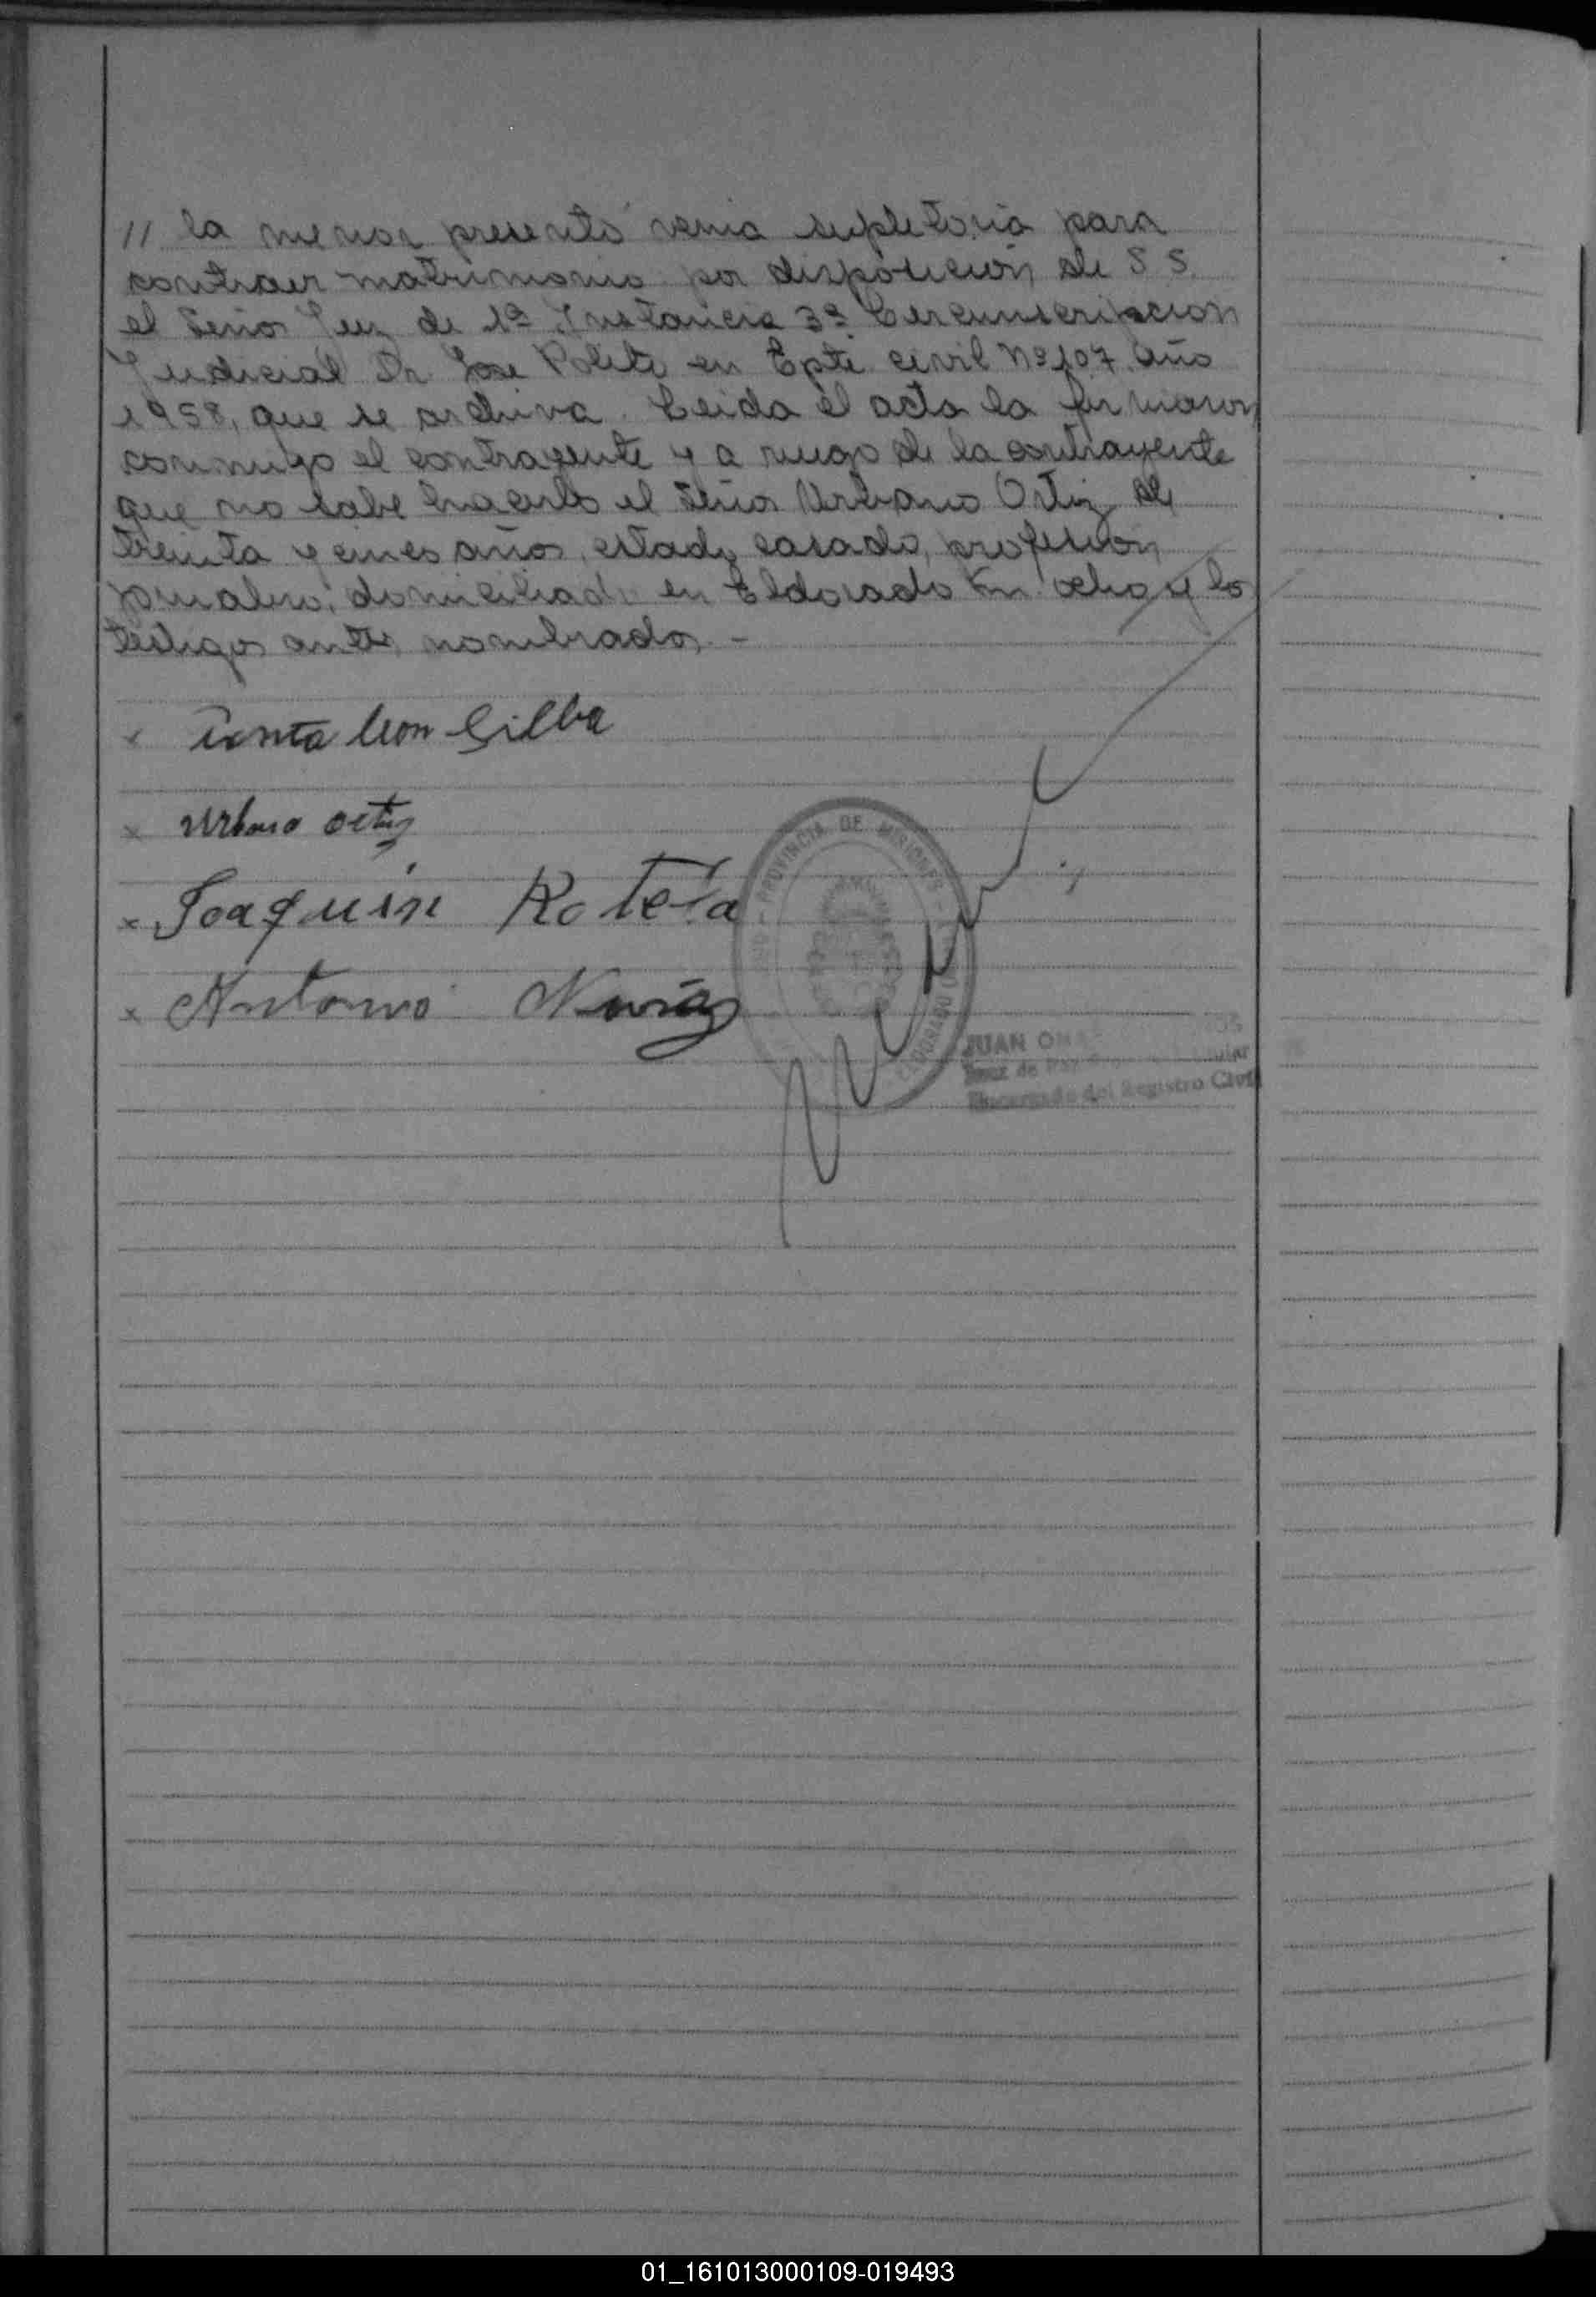 // la menor presentó venia supletoria para
contraer matrimonio por disposicion de S S.
el Señor Juez de 1ª Instancia 3ª Circunscripcion
Judicial Dr Jose Polito en Epte civil Nº 107 año
1958, que se archiva. Leida el acta la firmaron
conmigo el contrayente y a ruego de la contrayente
que no sabe hacerlo el Señor Urbano Ortiz de
treinta y cinco años, estado casado, profesion
jornalero, domiciliado en Eldorado Km ocho y los
testigos antes nombrados. -
x Panta leon Silba
x Urbano Ortiz
x Joaquin Rotela
x Antonio
PROVINCIA DE MISIONES - ELDORADO
JUAN
Juez de Paz
Encargado del Registro Civil
01_161013000109-019493